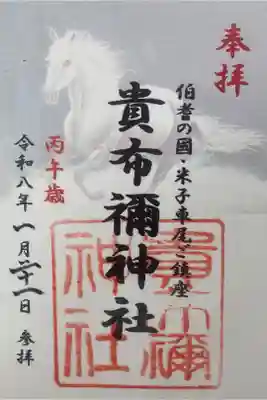 奉拝
伯耆の國・米子車尾ご鎮座
貴布禰神社
丙午歳
令和八年一月二十一日 参拝
貴布禰
神社